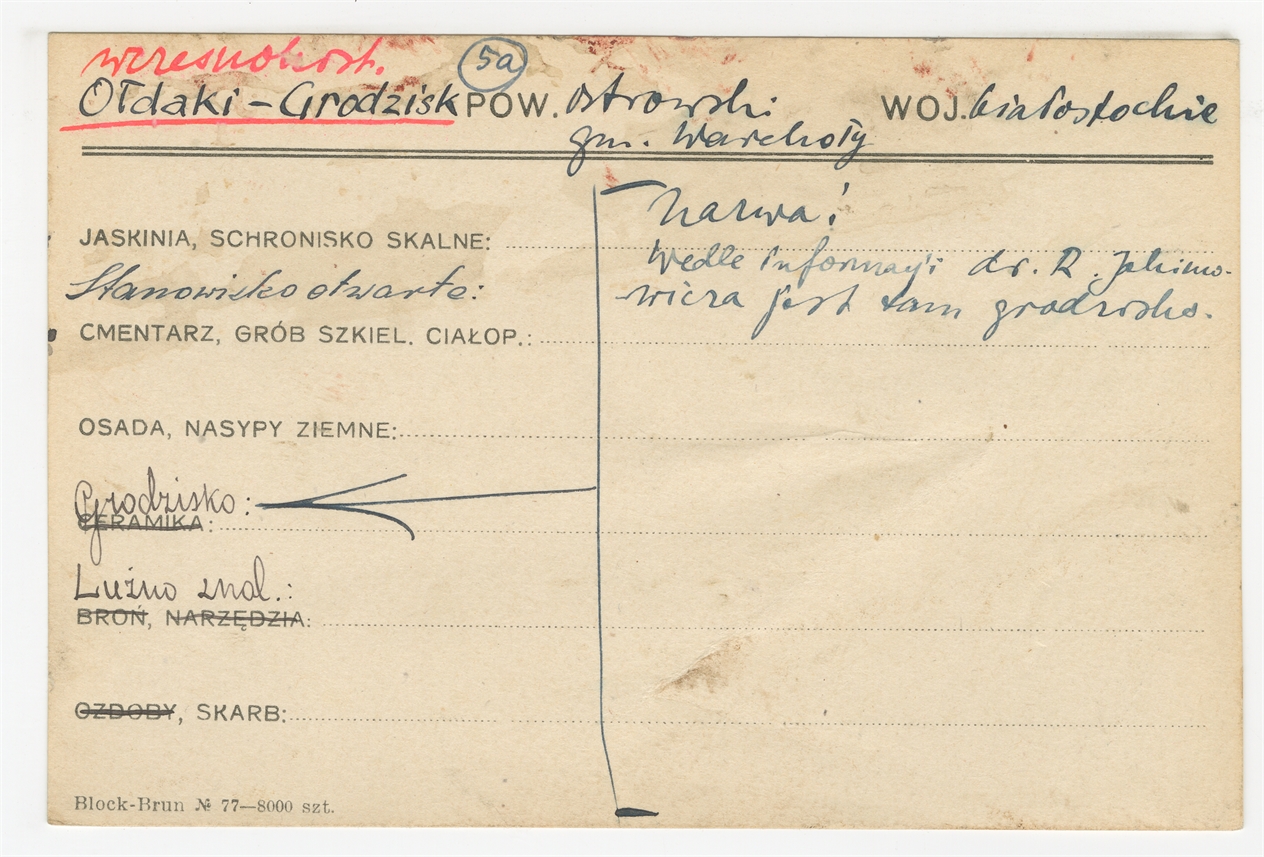 wczesnohist.
5a
Ołdaki - Grodzisk POW. ostrowski WOJ. białostockie
gm. Warchoły
Nazwa!
JASKINIA, SCHRONISKO SKALNE:
Wedle informacji dr. R. Jakimo-
Stanowisko otwarte:
wicza jest tam grodzisko.
CMENTARZ, GRÓB SZKIEL. CIAŁOP.:
OSADA, NASYPY ZIEMNE:
Grodzisko:
CERAMIKA:
Luźno znal.:
BROŃ, NARZĘDZIA:
OZDOBY, SKARB:
Block-Brun № 77—8000 szt.